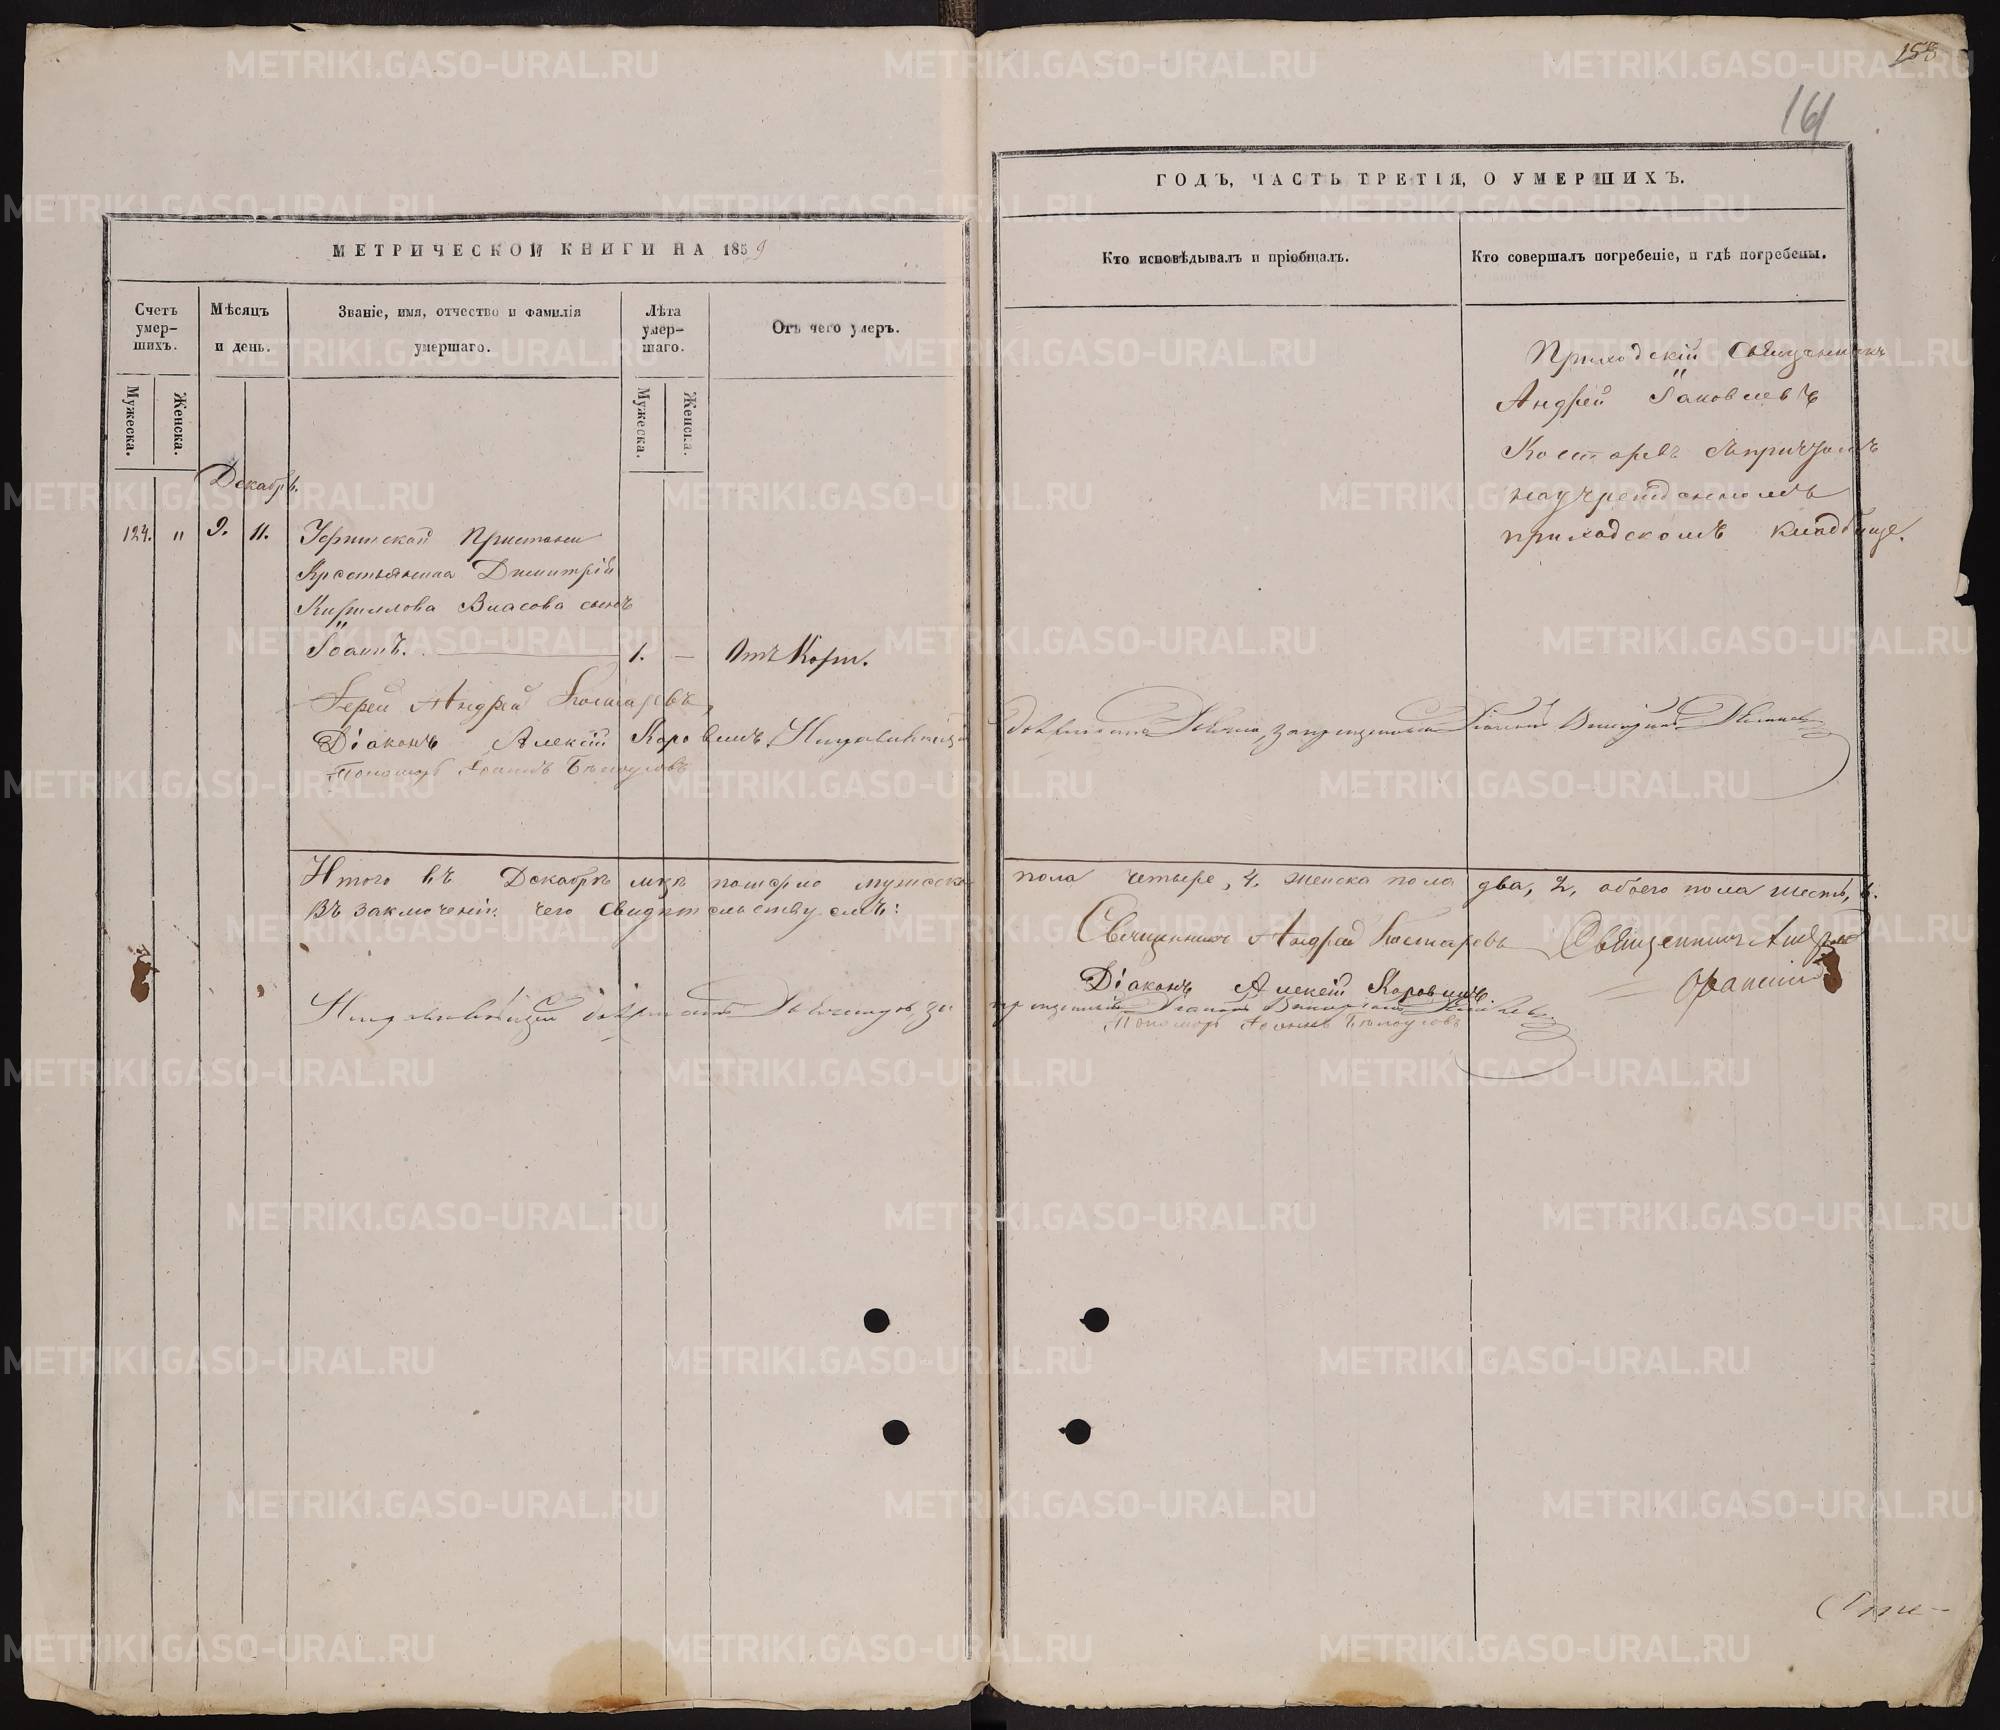 158
161
МЕТРИЧЕСКОЙ КНИГИ НА 1859
Счетъ умер-
шихъ.
Мѣсяцъ
и день.
Званіе, имя, отчество и фамилія
умершаго.
Лѣта
умер-
шаго.
Отъ чего умеръ.
Мужеска.
Женска.
Мужеска.
Женска.
Декабрь.
124. " 9. 11. Уткинской Пристани
Крестьянина Димитрія
Кирилова Власова сынъ
Іоаннъ. 1. — Отъ Кори.
Іерей Андрей Костаревъ,
Діаконъ Алексій Коровинъ
Пономарь Іоаннъ Бѣлоусовъ
Итого въ Декабрѣ мцѣ померло мужеска
Въ заключеніи чего свидѣтельствуемъ:
ГОДЪ, ЧАСТЬ ТРЕТІЯ, О УМЕРШИХЪ.
Кто исповѣдывалъ и пріобщалъ.
Кто совершалъ погребеніе, и гдѣ погребены.
Приходскій Священникъ
Андрей Іаковлевъ
Костаревъ съ причтомъ
на учрежденномъ
приходскомъ кладбище.
пола четыре, 4, женска пола два, 2, обоего пола шесть, 6.
Священникъ Андрей Костаревъ Священникъ
Діаконъ Алексій Коровинъ.
Пономарь Іоаннъ Бѣлоусовъ
METRIKI.GASO-URAL.RU